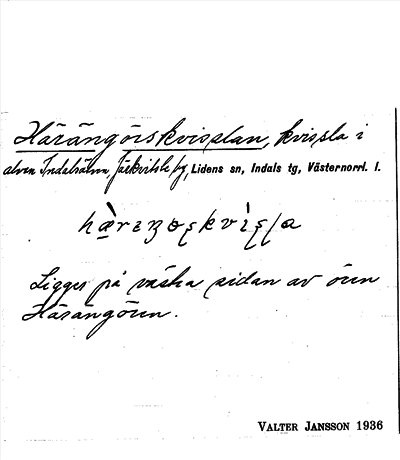 Häräng örskvisslan, kvissla i
älven Indalsälven, Järkvitsle by, Lidens sn, Indals tg, Västernorrl. l.
Ligger på västra sidan av ören
Härängören.
VALTER JANSSON 1936